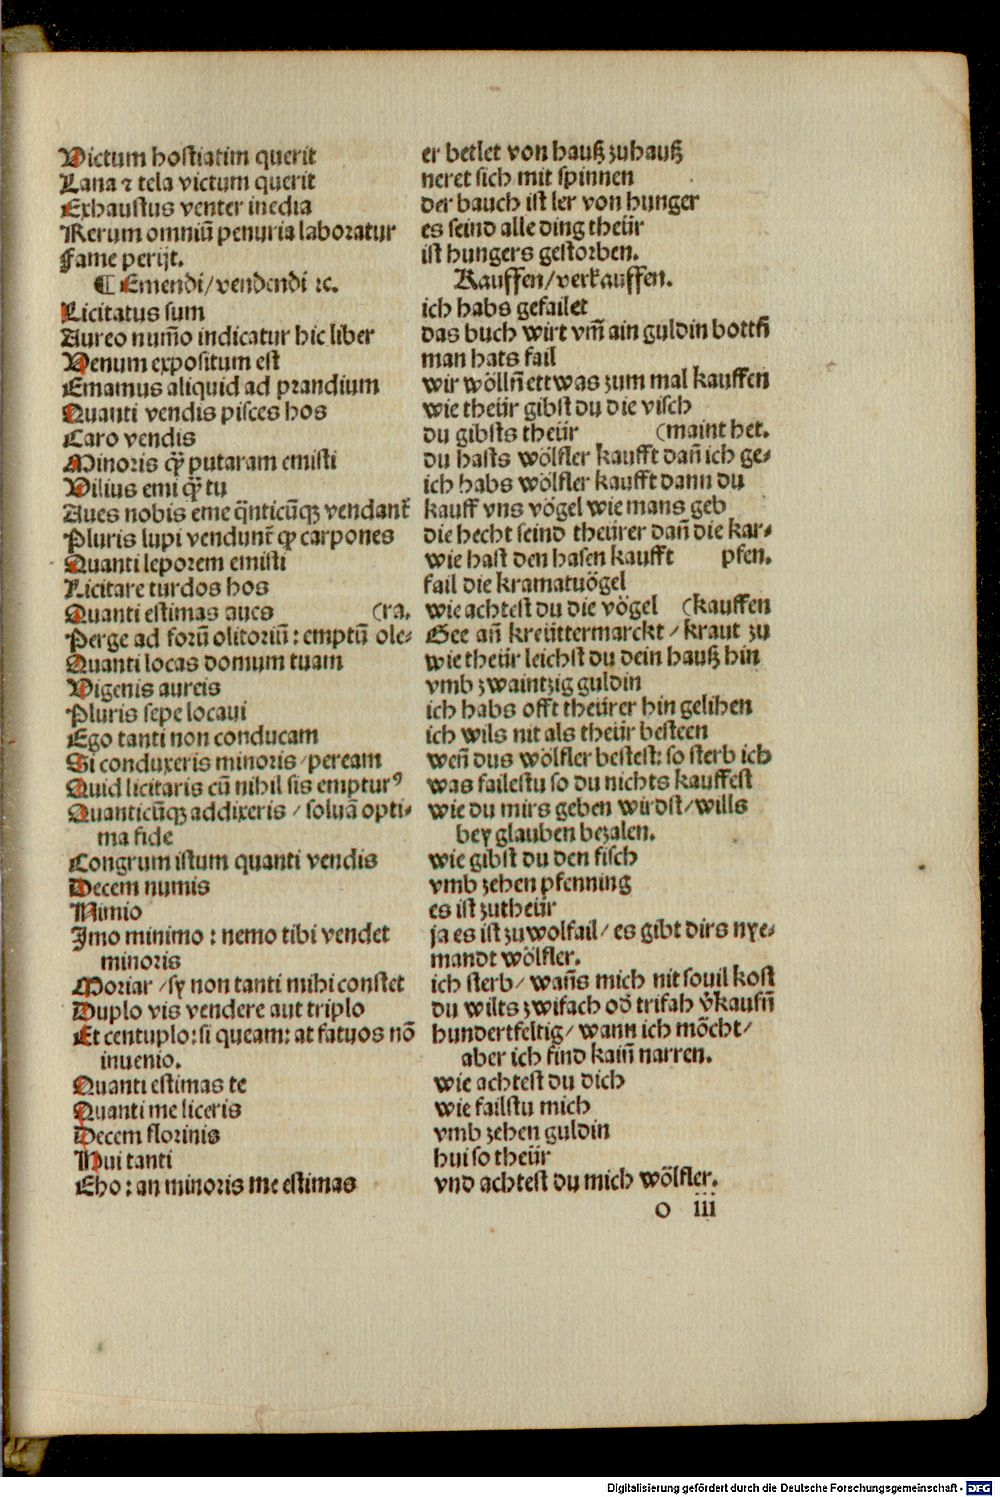 Victum hostiatim querit
Lana ⁊ tela victum querit
Exhaustus venter inedia
Rerum omniū penuria laboratur
Fame perijt.
¶ Emendi/vendendi ⁊c.
Licitatus sum
Aureo num̄o indicatur hic liber
Venum expositum est
Emamus aliquid ad prandium
Quanti vendis pisces hos
Caro vendis
Minoris qͣꝫ putaram emisti
Vilius emi qͣꝫ tu
Aues nobis eme q̄nticūqꝫ vendant᷑
Pluris lupi vendunt᷑ qꝫ carpones
Quanti leporem emisti
Licitare turdos hos
Quanti estimas aues (ra.
Perge ad forū olitoriū: emptū ole⸗
Quanti locas domum tuam
Vigenis aureis
Pluris sepe locaui
Ego tanti non conducam
Si conduxeris minoris/peream
Quid licitaris cū nihil sis emptur⁹
Quanticūqꝫ addixeris/soluā opti⸗
ma fide
Congrum istum quanti vendis
Decem numis
Nimio
Imo minimo: nemo tibi vendet
minoris
Moriar/sy non tanti mihi constet
Duplo vis vendere aut triplo
Et centuplo: si queam: at fatuos nō
inuenio.
Quanti estimas te
Quanti me liceris
Decem florinis
Hui tanti
Eho: an minoris me estimas
er betlet von hauß zuhauß
neret sich mit spinnen
der bauch ist ler von hunger
es seind alle ding theür
ist hungers gestorben.
Kauffen/verkauffen.
ich habs gefailet
das buch wirt vm̄ ain guldin bottn̄
man hats fail
wir wölln̄ ettwas zum mal kauffen
wie theür gibst du die visch
du gibsts theür (maint het.
du hasts wölfler kaufft dañ ich ge⸗
ich habs wölfler kaufft dann du
kauff vns vögel wie mans geb
die hecht seind theürer dañ die kar⸗
wie hast den hasen kaufft pfen.
fail die kramatuögel
wie achtest du die vögel (kauffen
Gee añ kreüttermarckt/kraut zu
wie theür leichst du dein hauß hin
vmb zwaintzig guldin
ich habs offt theürer hin gelihen
ich wils nit als theür besteen
weñ dus wölfler bestest: so sterb ich
was failestu so du nichts kauffest
wie du mirs geben wirdst/wills
bey glauben bezalen.
wie gibst du den fisch
vmb zehen pfenning
es ist zutheür
ja es ist zu wolfail/es gibt dirs nye⸗
mandt wölfler.
ich sterb/wañs mich nit souil kost
du wilts zwifach od̄ trifah v̄kaufn̄
hundertfeltig/wann ich möcht/
aber ich find kain̄ narren.
wie achtest du dich
wie failstu mich
vmb zehen guldin
hui so theür
vnd achtest du mich wölfler.
O iii
Digitalisierung gefördert durch die Deutsche Forschungsgemeinschaft - DFG